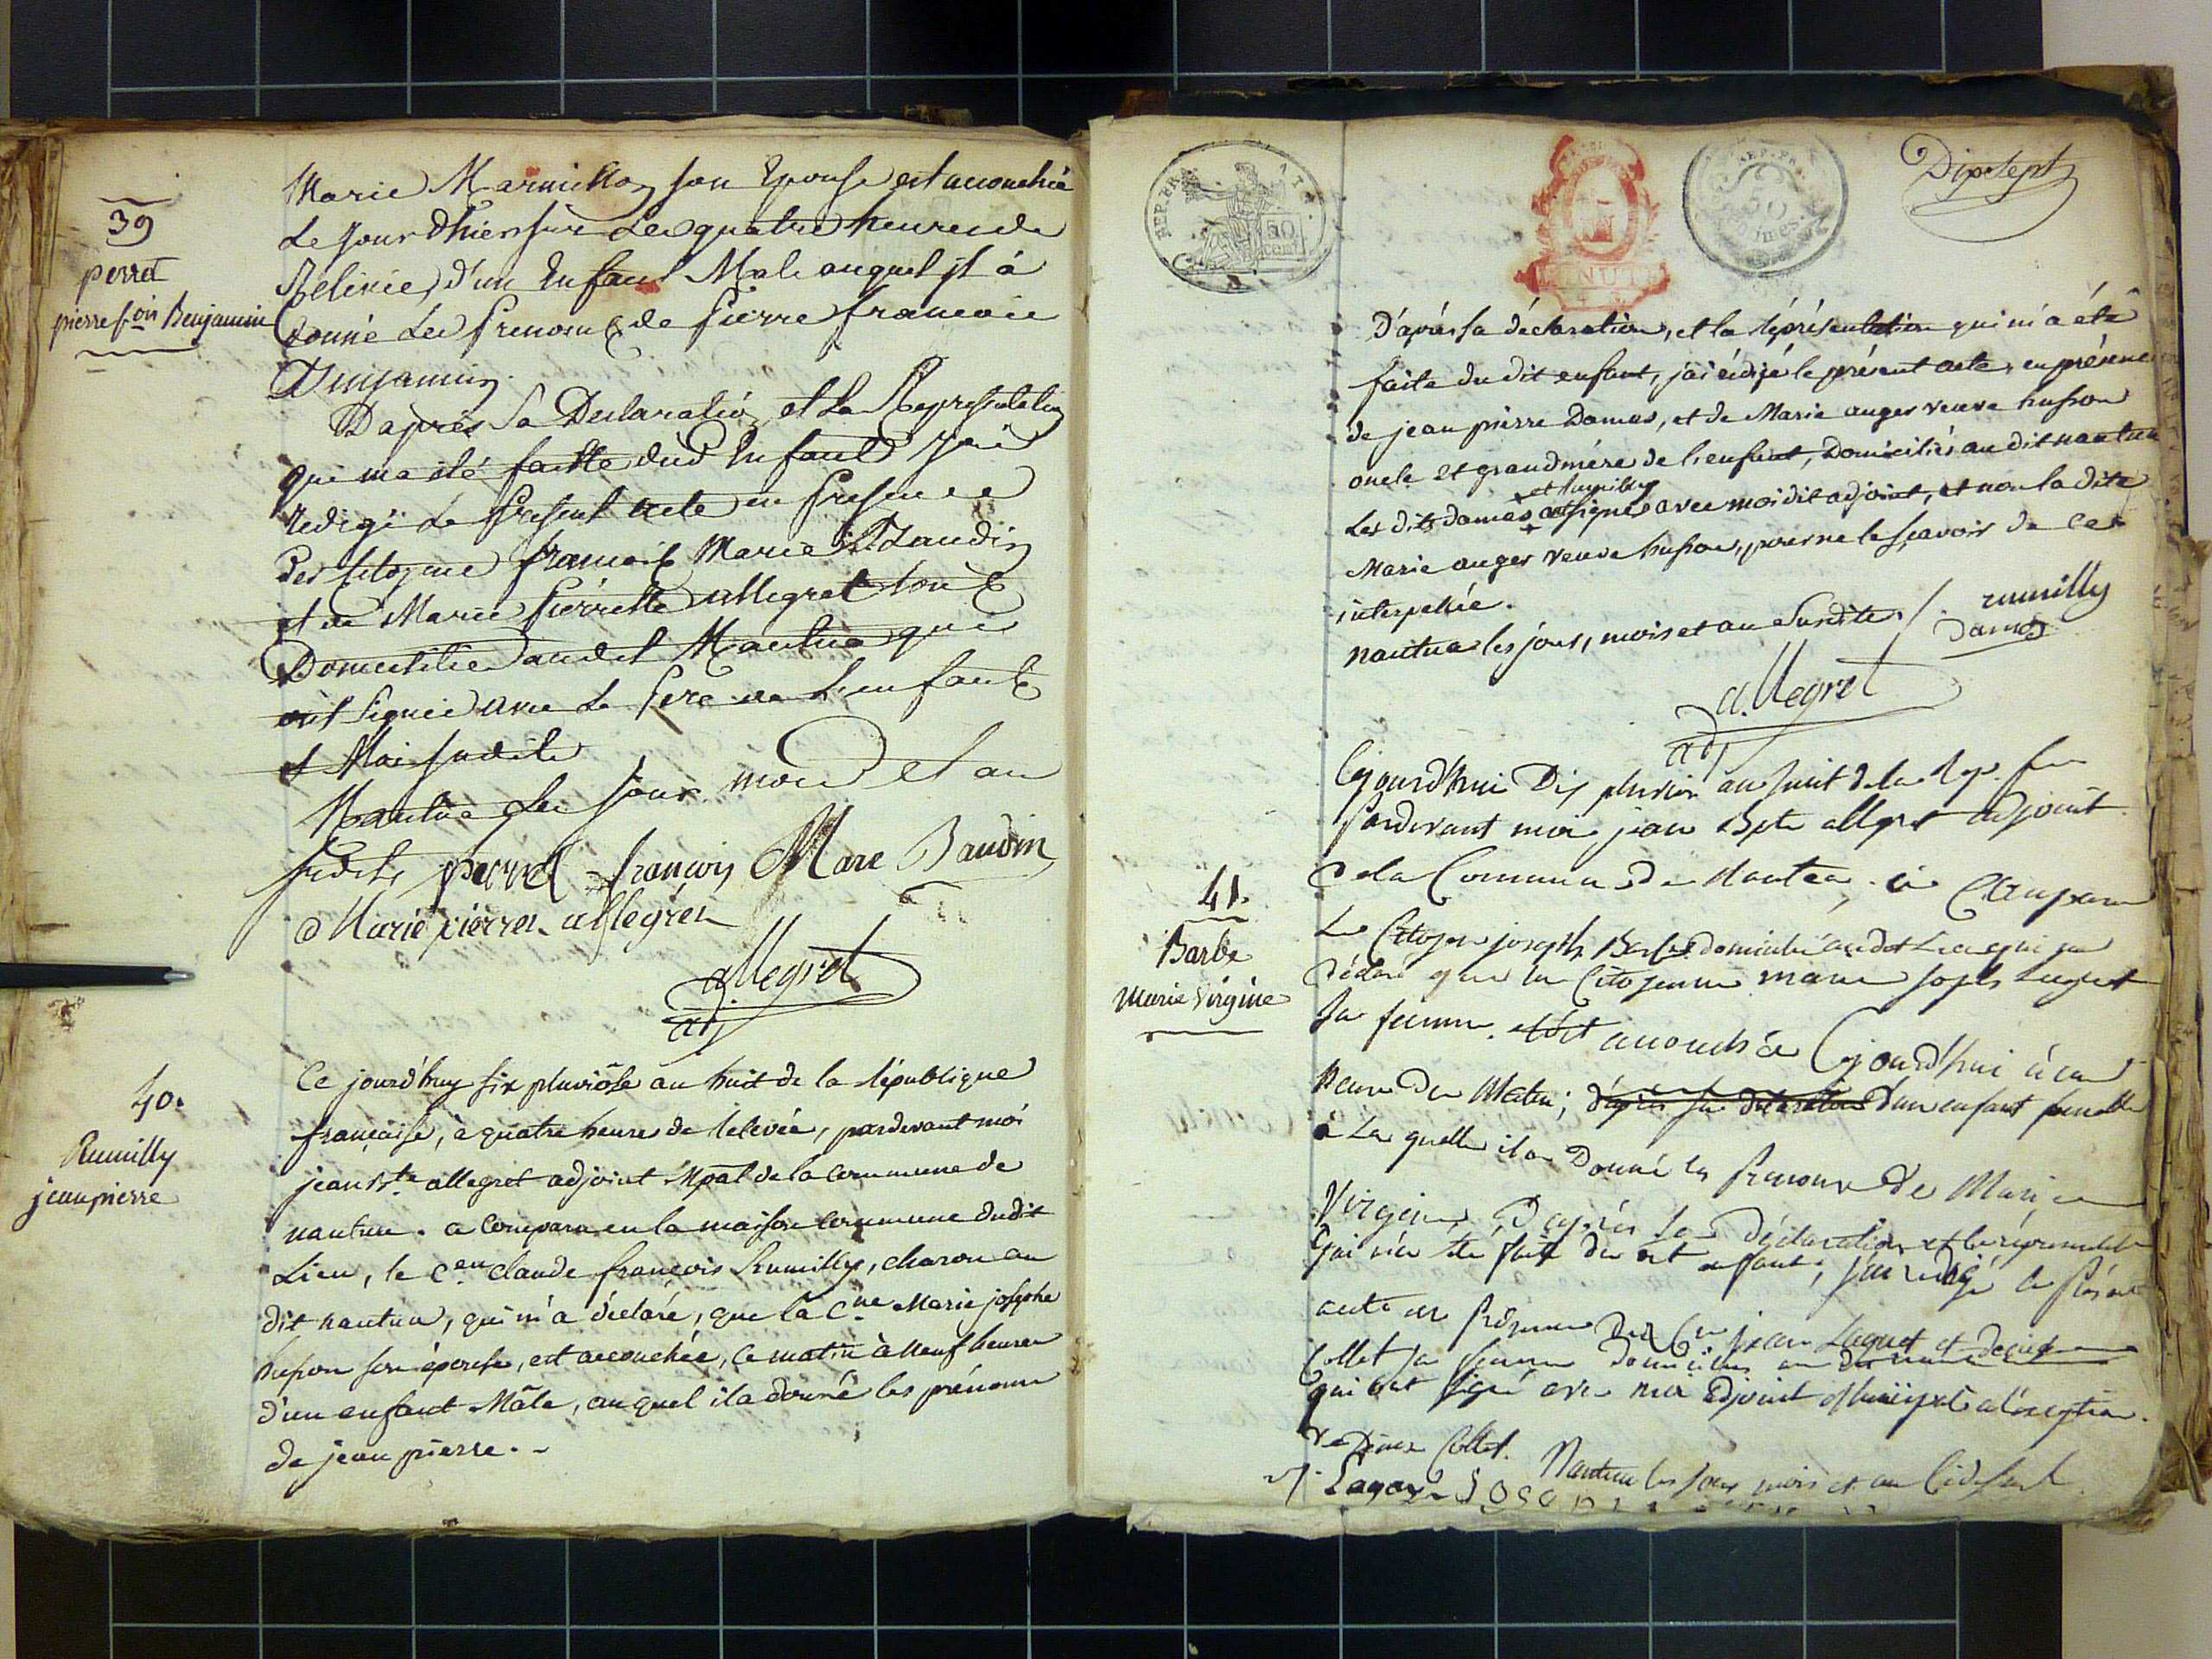 39
perret
pierre f.ois Benjamin
Marie Marmillon son Epouse est accouchée
Le Jour d'hier sur Les quatre heures de
Relevée, d'un Enfant Male auquel il à
donné Les Prenoms de Pierre francois
Benjamin.
D'apres Sa Declaration et La Representation
qui ma été faitte dud Enfant Jai
redigé Le present acte en presence
des Citoyens francois Marie Baudin
et de Marie Pierrette allegret tous
Domicilies audit Nantua qui
ont signés avec Le Pere de L'enfant
et Moi sudit
Nantua Les Jour mois et an
sudits perret françois Mare Baudin
Marie pierrer allegrer
allegret
adj
40.
Rumilly
jean pierre
Ce jourd'huy six pluviôse an huit de la république
française, à quatre heures de relevée, pardevant moi
jean Bte. allegret adjoint Mpal de la commune de
nantua. a comparu en la maison commune dudit
Lieu, le C.en claude françois Rumilly, charon au
dit nantua, qui m'a déclaré, que la C.ne Marie josephe
husson son épouse, est accouchée, ce matin à neuf heures
d'un enfant Mâle, auquel il a donné les prénoms
de jean pierre.
REP. FR.
50 cent
MINUTE
REP. FR.
50
Dix-sept
D'après sa déclaration, et la réprésentation qui m'a été
faite du dit enfant, j'ai rédigé le présent acte, en présence
de jean pierre Damas, et de Marie auger veuve husson
oncle et grandmére de l'enfant, Domiciliés au dit nantua
et Rumilly
Les dits damas ont signés avec moi dit adjoint, et non la dite
Marie auger veuve husson, pour ne le sçavoir de ce
interpellée.
nantua les jour, mois et an Susdits /. rumilly
Damas
allegret
adj
41.
Barbe
Marie Virginie
Cejourd'hui Dix pluviose an huit de la Rep. fse
Pardevant moi jean Bpte allegret adjoint
de la Commune de Nantua, à Comparu
Le Citoyen joseph Barbe domicilié audit Lieu qui m'a
déclaré que la Citoyenne marie josephe
sa femme est accouchée Cejourd'hui à une
heure du Matin; d'après sa déclaration d'un enfant femelle
à La quelle il a Donné les Prenoms de Marie
Virginie, D'après Sa Déclaration et la réprésentation
qui m'a été faite du dit enfant, j'ai redigé le Présent
acte en Présence Des Cen jean Laguet et
Collet sa femme domiciliés
qui ont signé avec moi adjoint Municipal à l'exception
de Collet. Nantua les jour mois et an Cidessus